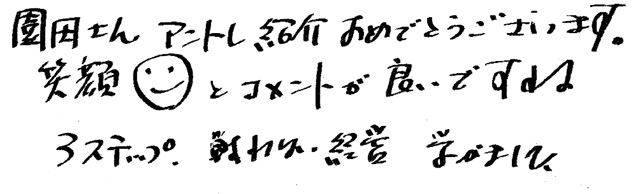 園田さん アントレ紹介 おめでとうございます。
笑顔 とコメントが良いですね
3ステップ. 戦わない経営 学びました